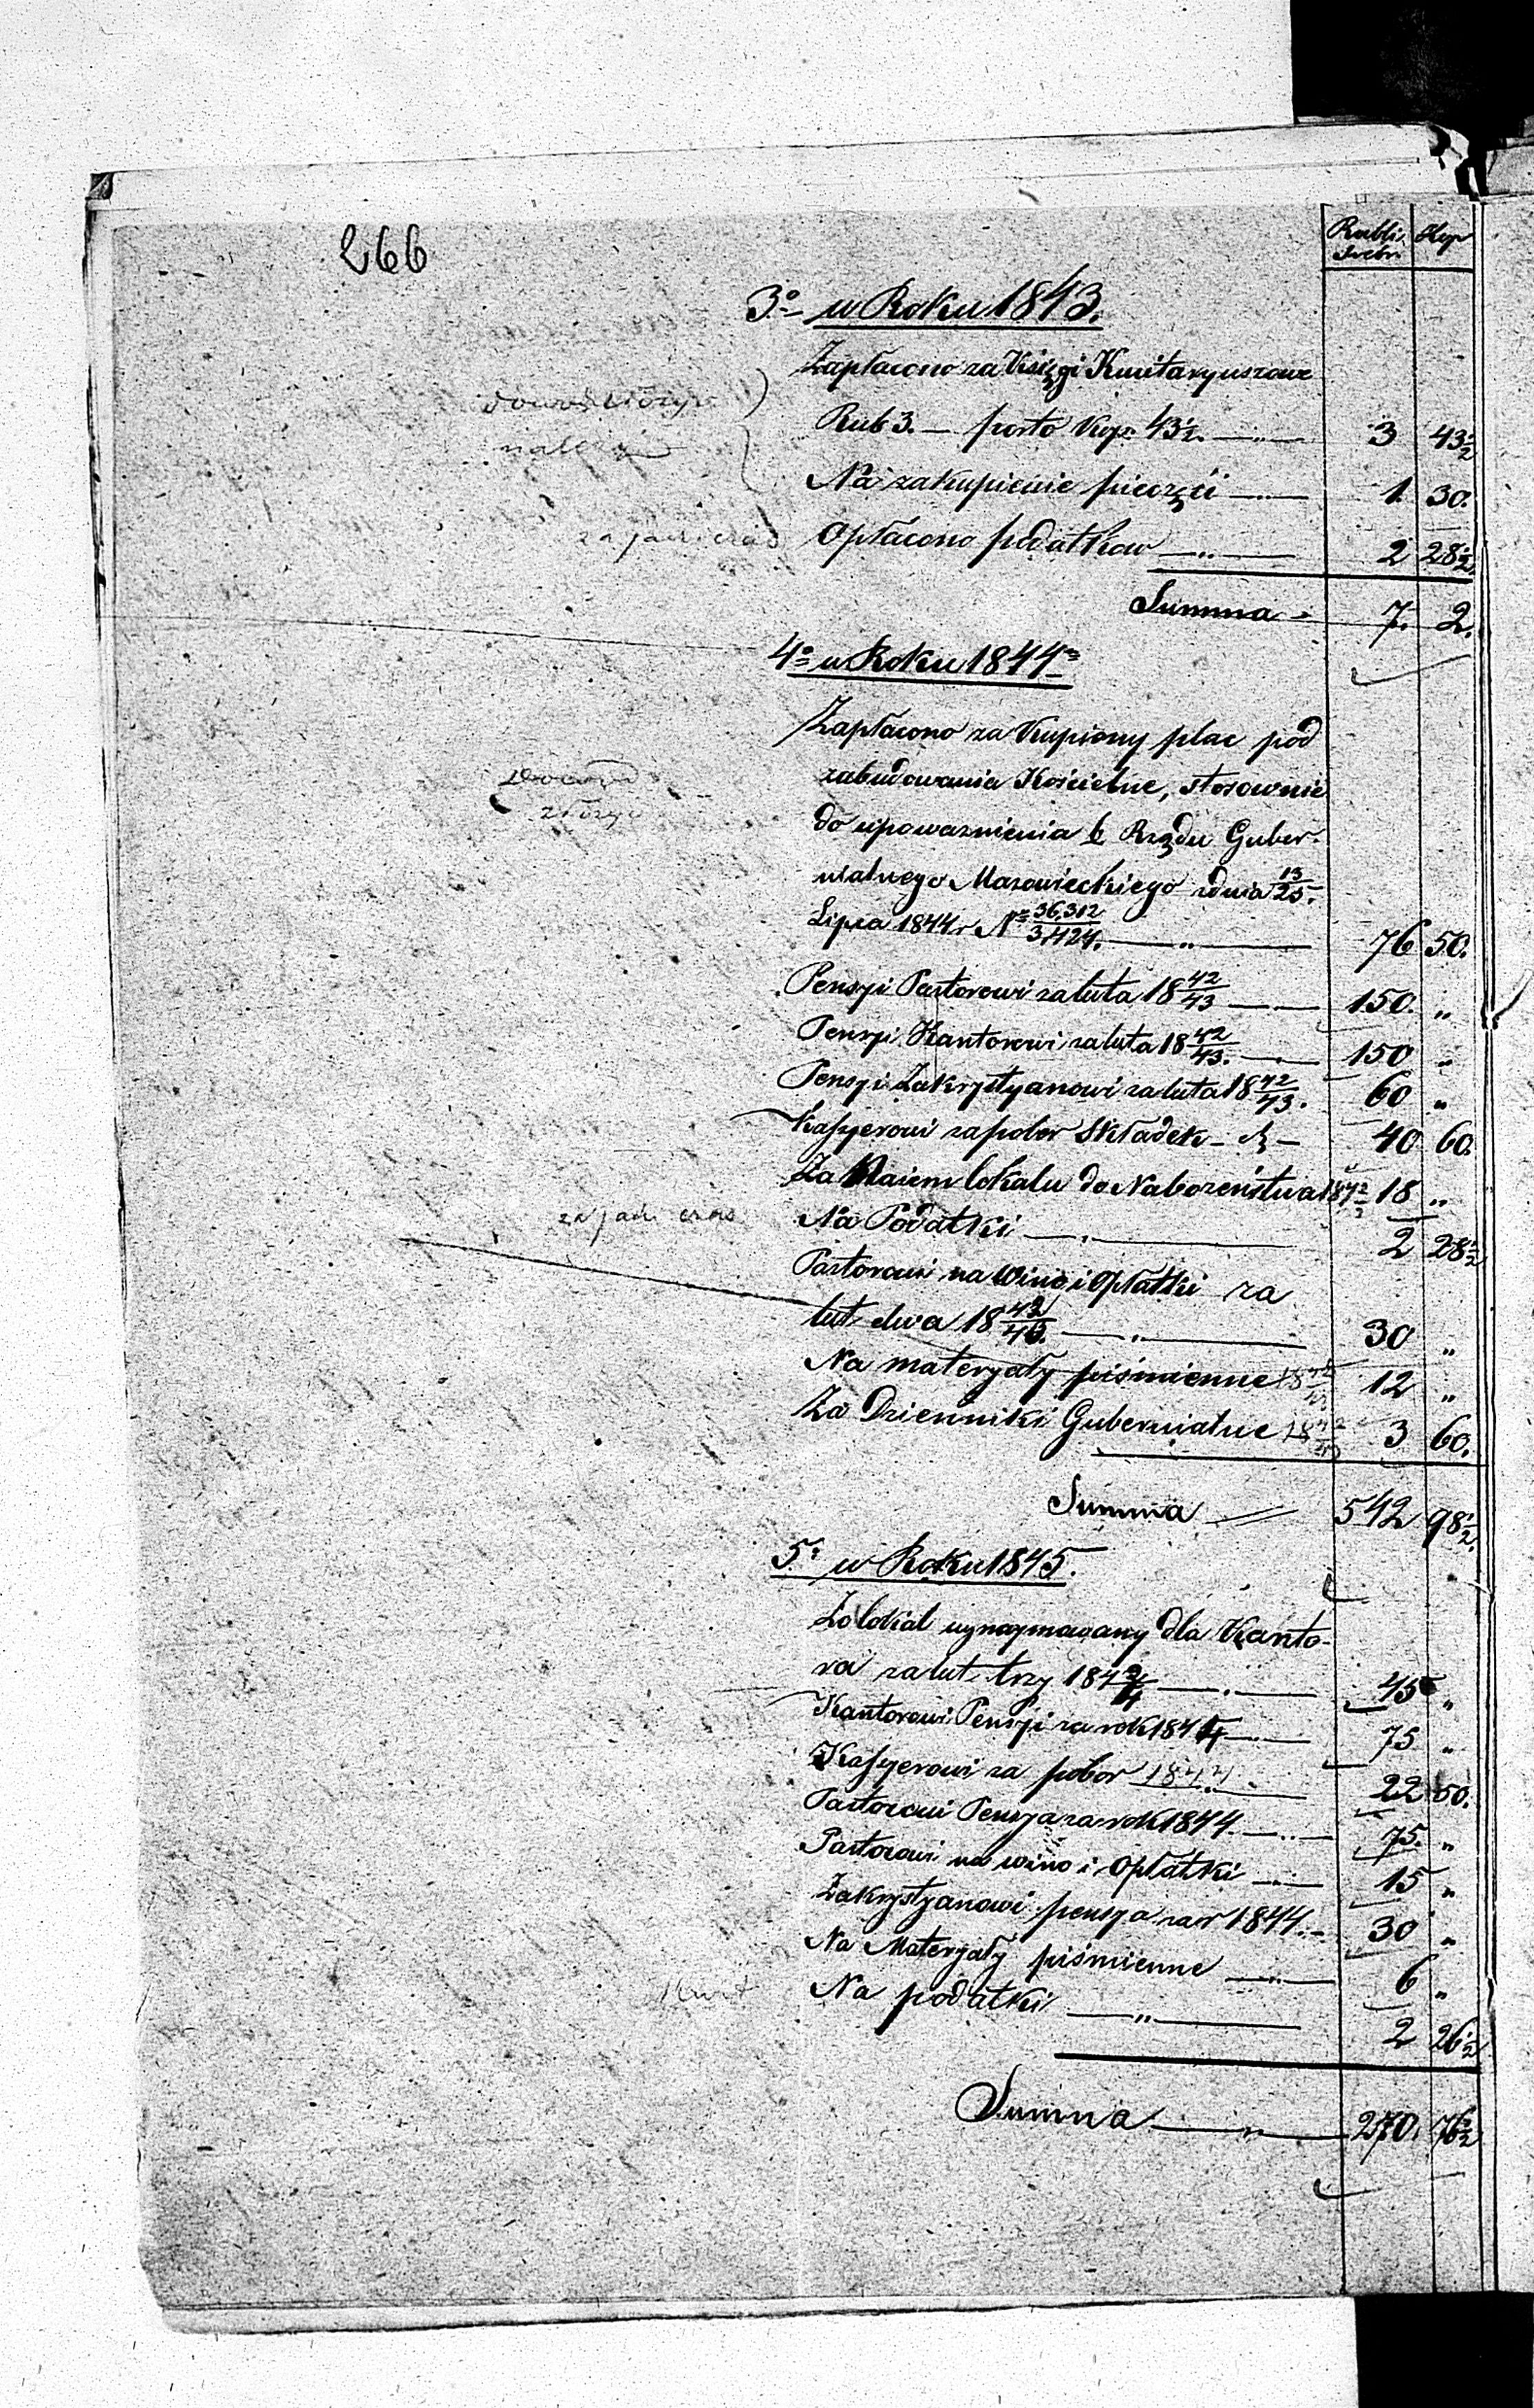 266
Rubli Srebr. Kop
3º w Roku 1843.
Zapłacono za Księgi Kwitaryuszowe
Rub 3. — porto Kop. 43½. — 3 43½
Na zakupienie pieczęci — 1 30.
Opłacono podatków — 2 28½
Summa 7. 2.
4º w Roku 1844
Zapłacono za Kupiony plac pod
zabudowania Kościelne, stosownie
do upoważnienia Rządu Guber-
nialnego Mazowieckiego z dnia 13/25.
Lipca 1844 r Nº 36,312/31424. — 76 50.
Pensyi Pastorowi za lata 18 42/43 — 150. „
Pensyi Kantorowi za lata 18 42/43. — 150 „
Pensyi Zakrystyanowi za lata 18 42/43. 60 „
Kassyerowi za pobor Składek — 40 60.
Za Naiem lokalu do Nabożeństwa 184 2/3 18 „
za jaki czas
Na Podatki — 2 28½
Pastorowi na Wino i Opłatki za
lat dwa 18 42/43. — 30 „
Na materyały piśmienne 18 42/43 12 „
Za Dzienniki Gubernialne 18 42/43 3 60.
Summa 542 98½.
5. w Roku 1845.
Za lokal wynaymowany dla Kanto-
ra za lat trzy 184 2/4 — 45 „
Kantorowi Pensyi za rok 1844 — 75 „
Kassyerowi za pobor 1844 22 50.
Pastorowi Pensya za rok 1844. — 75. „
Pastorowi na wino i Opłatki — 15 „
Zakrystyanowi pensya za r 1844. — 30 „
Na Materyały piśmienne — 6 „
Na podatki — 2 26½
Summa — 270. 76½